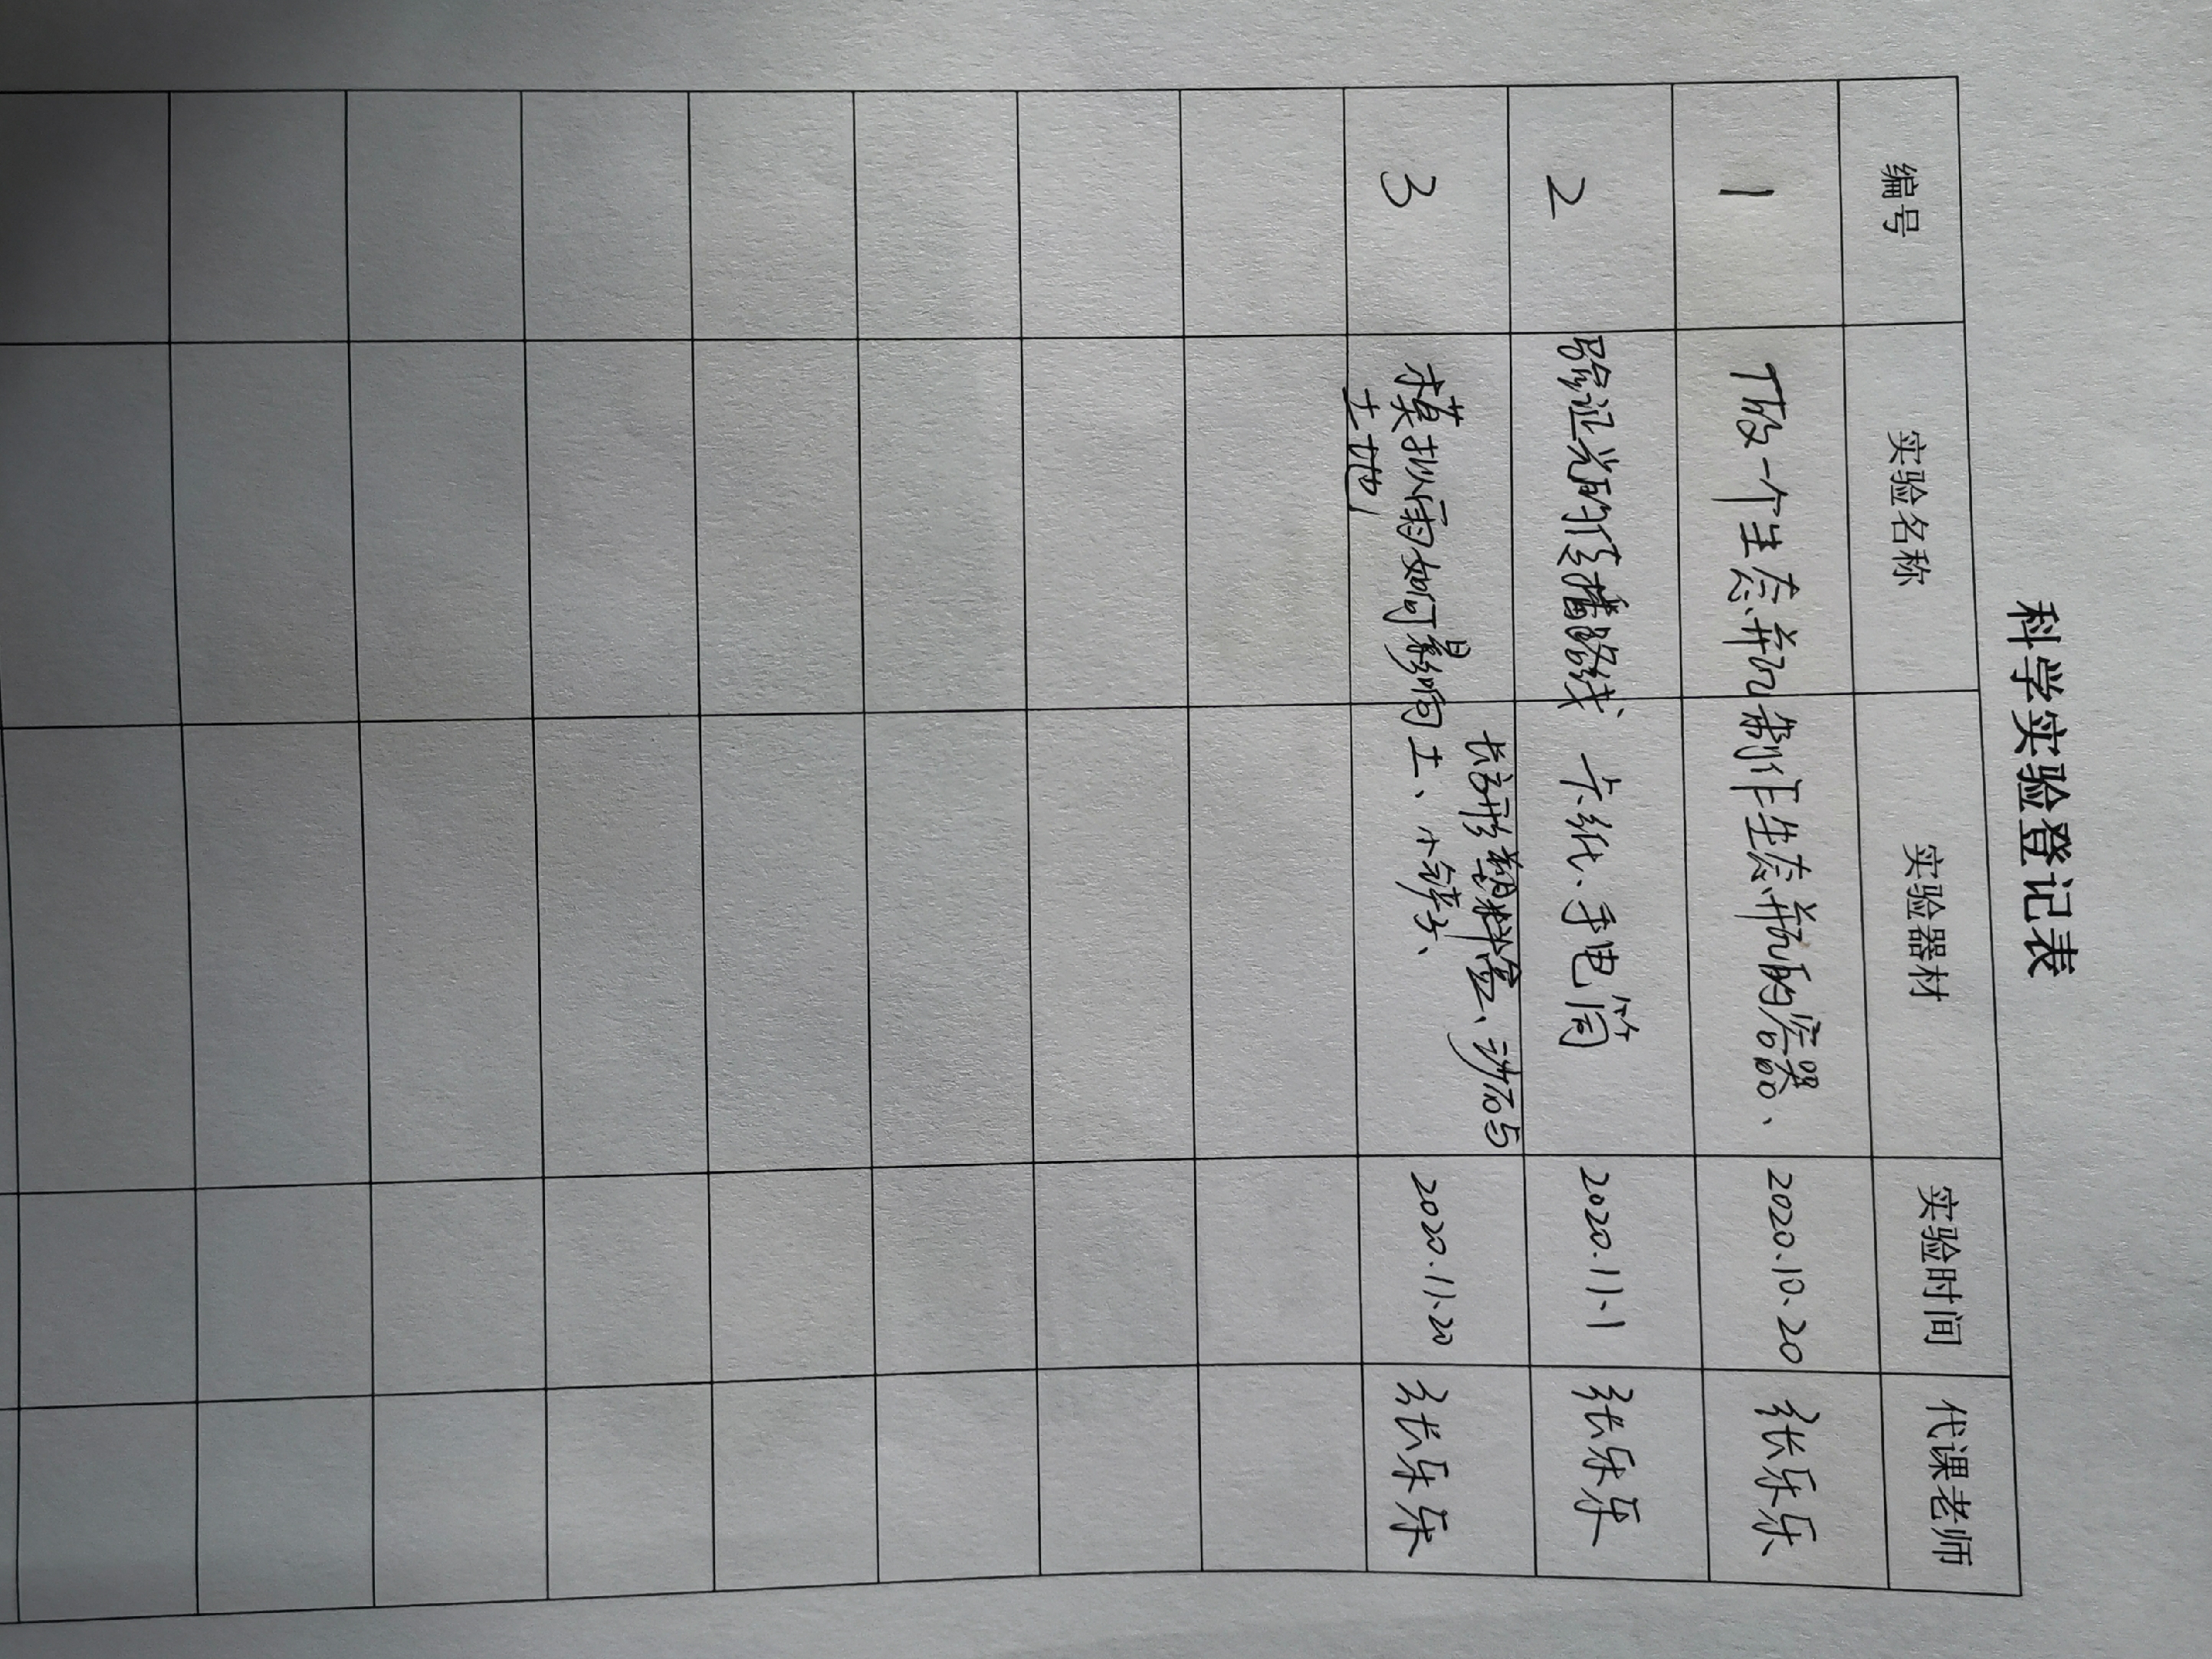 科学实验登记表
编号 实验名称 实验器材 实验时间 代课老师
1 做一个生态瓶 制作生态瓶的容器、 2020.10.20 张乐乐
2 验证光的传播路线 卡纸、手电筒 2020.11.1 张乐乐
3 模拟雨如何影响土地 长方形塑料盒、沙石与土、小铲子、 2020.11.20 张乐乐